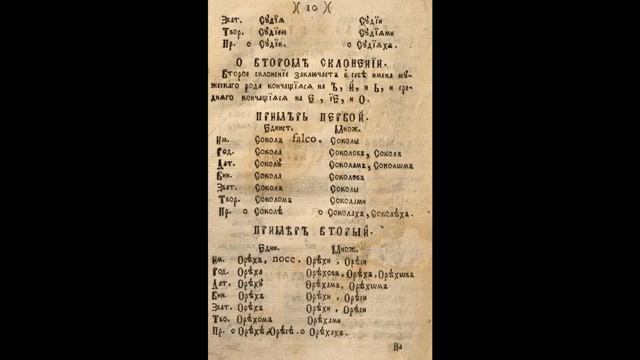 )( 10 )(
Зват. Судїѧ Судїи
Твор. Судїею Судїѧми
Пр. о Судїи. о Судїѧхъ.
О ВТОРОМЪ СКЛОНЕНЇИ.
Второе склоненїе заключаетъ в себѣ имена му-
жескаго рода кончащїѧсѧ на Ъ, Й, и Ь, и сред-
нѧго кончащїѧсѧ на Е, ЇЕ, и О.
ПРИМѢРЪ ПЕРВОЙ.
Единст. Множ.
Им. Соколъ falco. Соколы
Род. Сокола Соколовъ, Соколъ
Дат. Соколу Соколамъ, Соколѡмъ
Вин. Сокола Соколовъ
Зват. Соколъ Соколы
Твор. Соколомъ Соколами
Пр. о Соколѣ о Соколахъ, Соколѣхъ.
ПРИМѢРЪ ВТОРЫЙ.
Един. Множ.
Им. Орѣхъ, noce. Орѣхи, Орѣси
Род. Орѣха Орѣховъ, Орѣхъ, Орѣхѡвъ
Дат. Орѣху Орѣхамъ, Орѣхѡмъ
Вин. Орѣхъ Орѣхи, Орѣси
Зват. Орѣхъ Орѣхи, Орѣси
Тво. Орѣхомъ Орѣхами
Пр. о Орѣхѣ, Орѣсѣ. о Орѣхахъ.
На